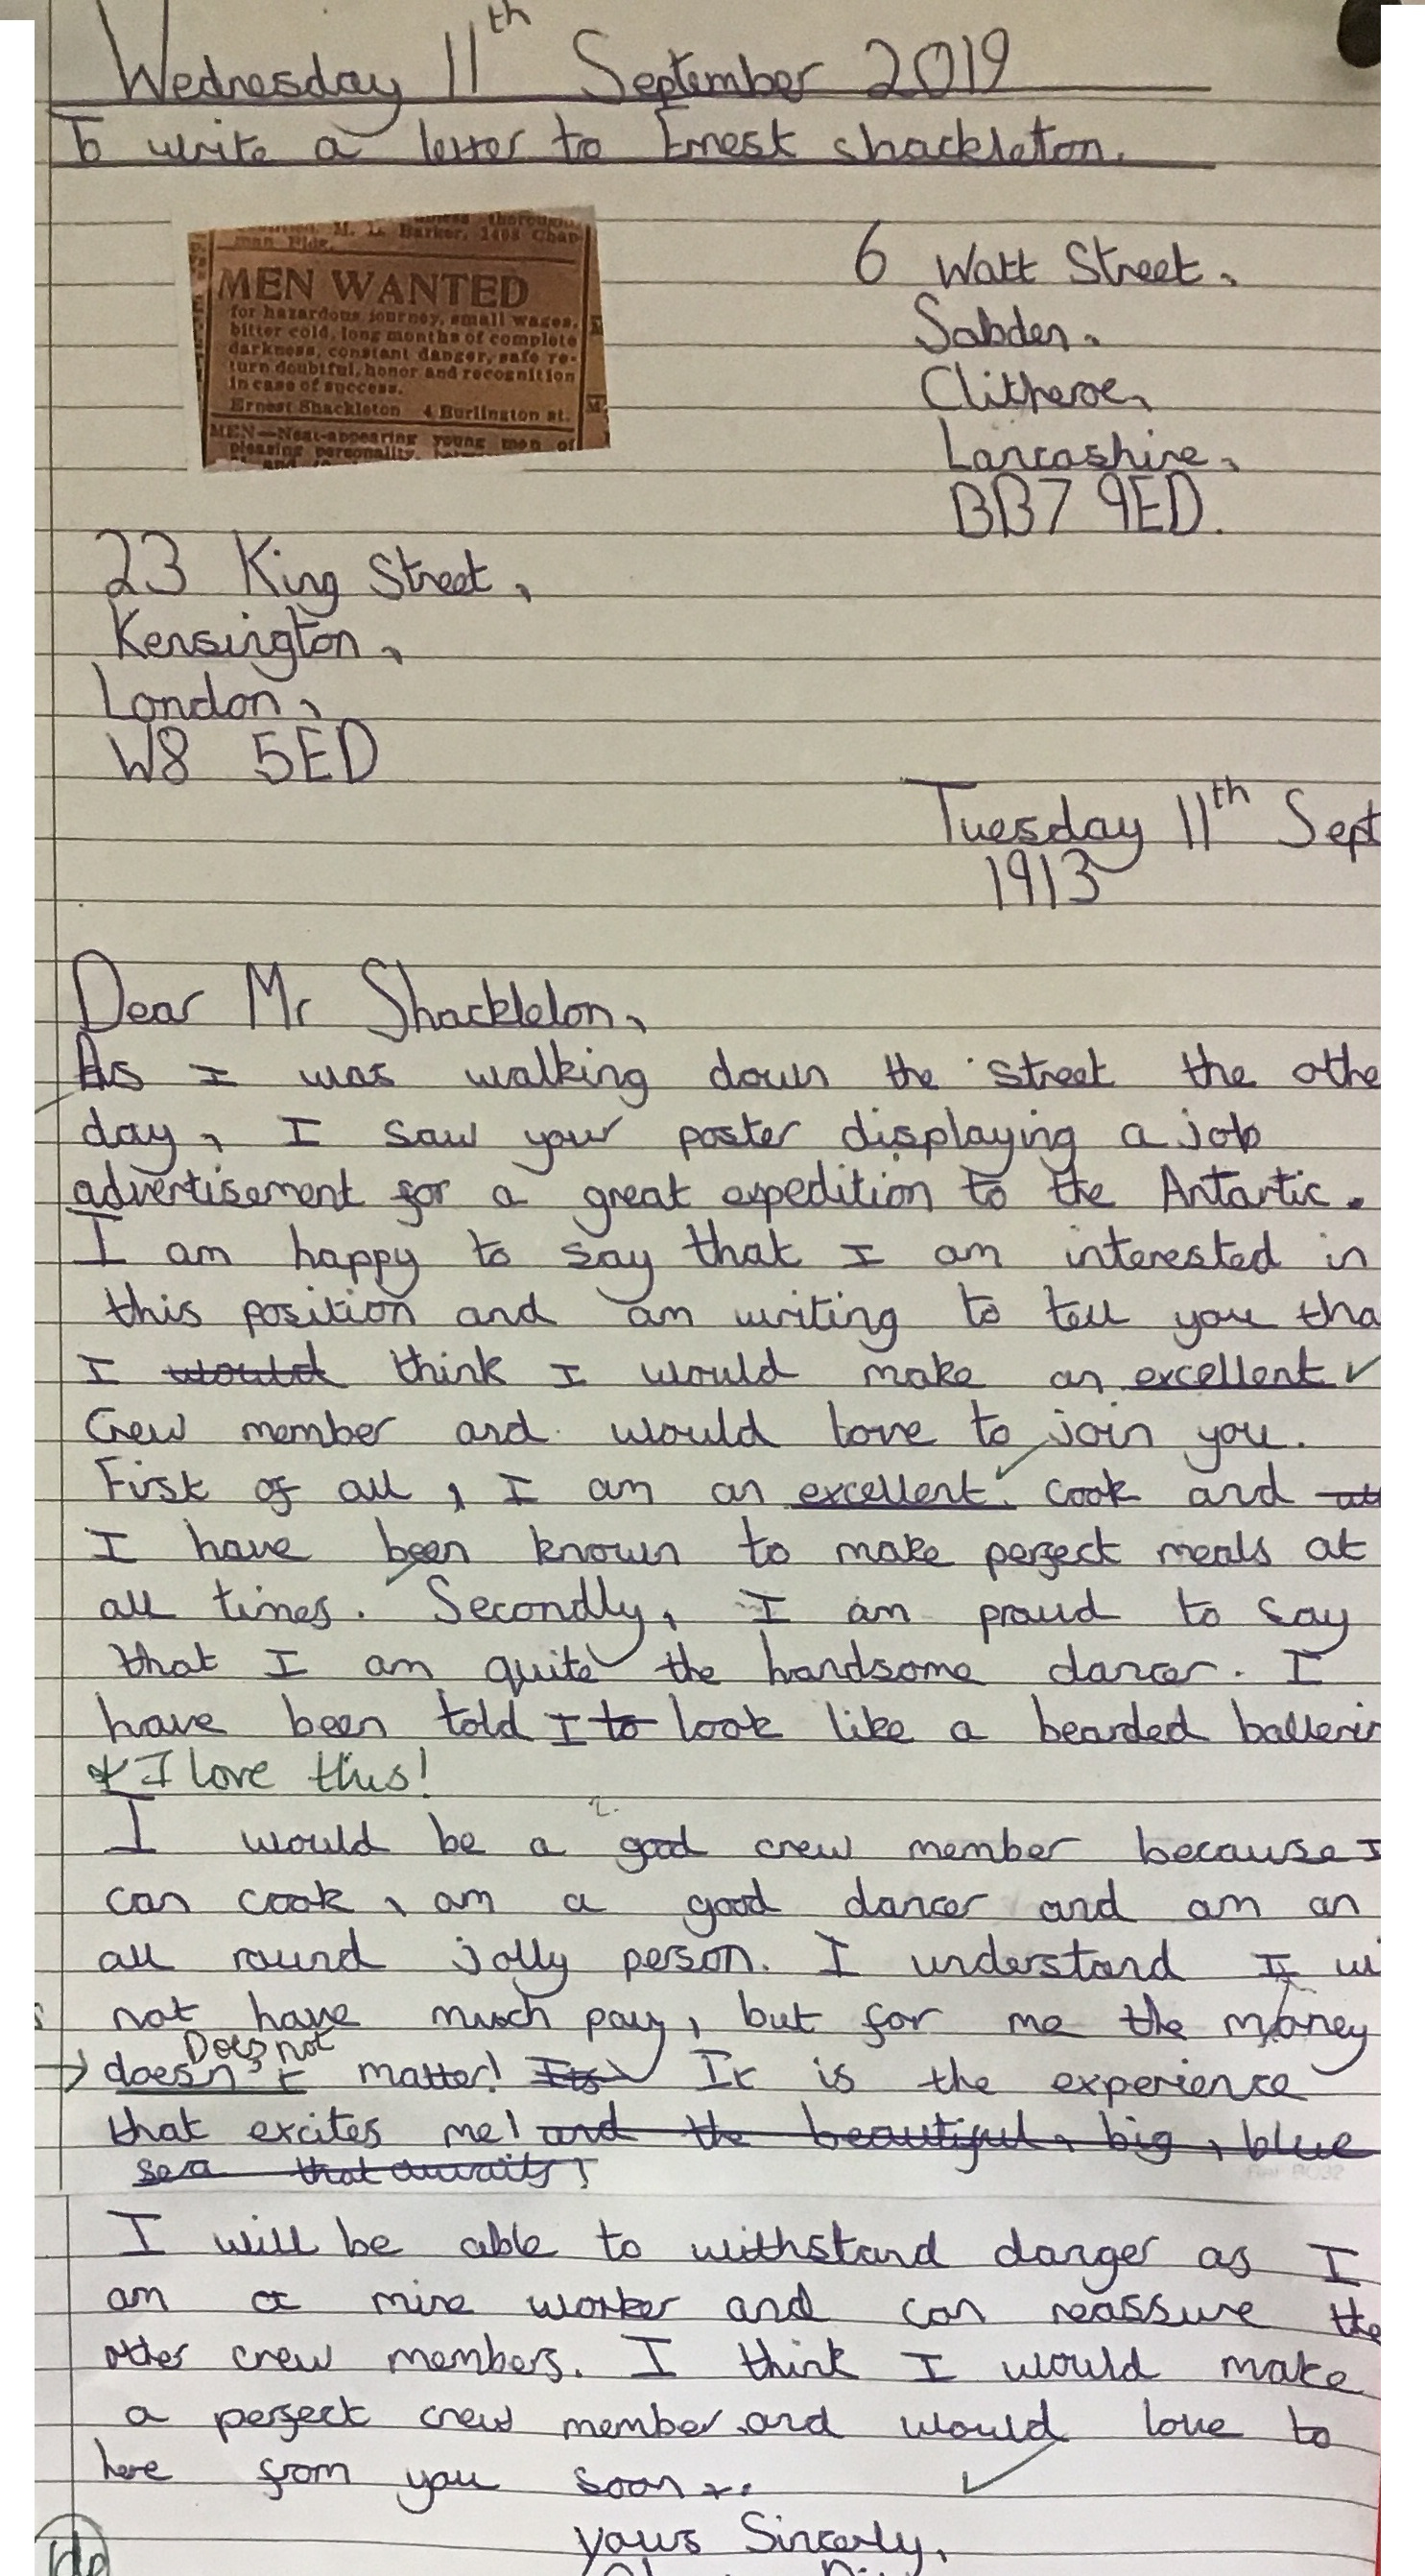 Wednesday 11th September 2019
To write a letter to Ernest Shackleton.
M. L. Barker, 1408 Chap-
man Bldg.
MEN WANTED
for hazardous journey, small wages,
bitter cold, long months of complete
darkness, constant danger, safe re-
turn doubtful, honor and recognition
in case of success.
Ernest Shackleton 4 Burlington st.
MEN—Neat-appearing young men of
pleasing personality,
6 Watt Street,
Sabden,
Clitheroe,
Lancashire,
BB7 9ED.
23 King Street,
Kensington,
London,
W8 5ED
Tuesday 11th Sept
1913
Dear Mr Shackleton,
As I was walking down the street the othe
day, I saw your poster displaying a job
advertisement for a great expedition to the Antartic.
I am happy to say that I am interested in
this position and am writing to tell you tha
I would think I would make an excellent
Crew member and would love to join you.
First of all, I am an excellent cook and
I have been known to make perfect meals at
all times. Secondly, I am proud to say
that I am quite the handsome dancer. I
have been told I to look like a bearded ballerin
* I love this!
I would be a good crew member because I
can cook, am a good dancer and am an
all round jolly person. I understand I wi
not have much pay, but for me the money
Does not
doesn't matter! Its It is the experience
that excites me! and the beautiful, big, blue
sea that awaits!
I will be able to withstand danger as I
am a mine worker and can reassure the
other crew members. I think I would make
a perfect crew member and would love to
here from you soon...
yours Sincerly,